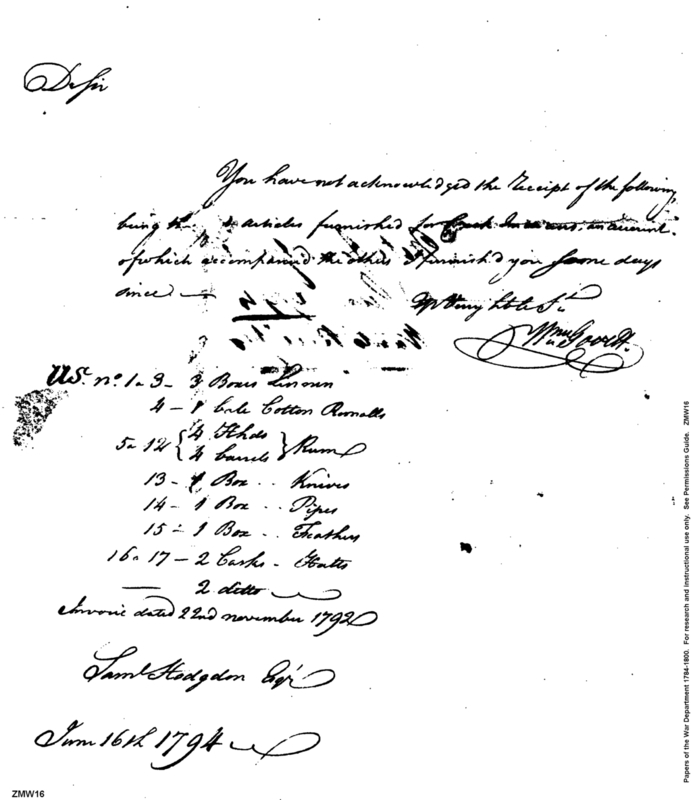 Dr Sir
You have not acknowledged the Receipt of the following
being the articles furnished for Creek Indians, an account
of which accompanied the others I furnish'd you some days
since
Yr Very hble St
US. no. 1 a 3 - 3 Boxes Linnen
4 - 1 bale Cotton Romalls
5 a 12 { 4 Hhds
4 barrels } Rum
13 - 1 Box .. Knives
14 - 1 Box .. Pipes
15 - 1 Box .. Feathers
16 a 17 - 2 Casks - Hatts
— 2 ditto
Invoice dated 22nd november 1792
Saml Hodgdon Esqr
June 16th 1794
ZMW16
Papers of the War Department 1784-1800. For research and instructional use only. See Permissions Guide. ZMW16